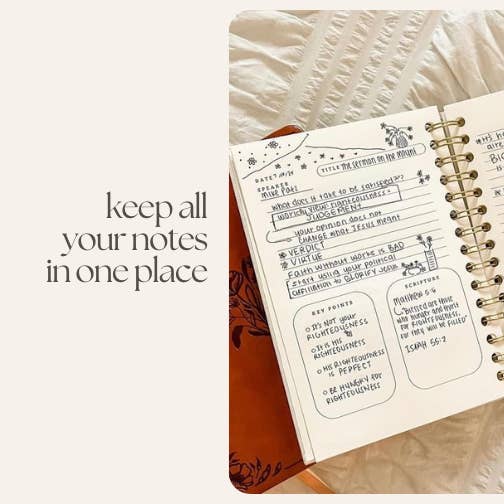 keep all
your notes
in one place
DATE 7/18/21
TITLE The Sermon on the Mount
SPEAKER
MIKE
What does it take to be satisfied??
Worldly view: righteousness =
JUDGEMENT
your opinion does not
CHANGE what Jesus meant
VERDICT
VIRTUE
Faith without works is BAD
start using your political
affiliation to GLORIFY Jesus
KEY POINTS
IT'S NOT YOUR
RIGHTEOUSNESS
IT IS HIS
RIGHTEOUSNESS
HIS RIGHTEOUSNESS
IS PERFECT
BE HUNGRY FOR
RIGHTEOUSNESS
SCRIPTURE
Matthew 5:6
"Blessed are those
who hunger and thirst
for righteousness,
for they will be filled"
ISAIAH 55:2